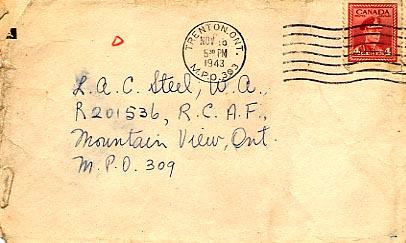 TRENTON, ONT.
NOV 16
5 30 PM
1943
M.P.O. 303
CANADA
4 4
L.A.C. Steel, W.A.,
R201536, R.C.A.F.,
Mountain View, Ont.
M.P.O. 309